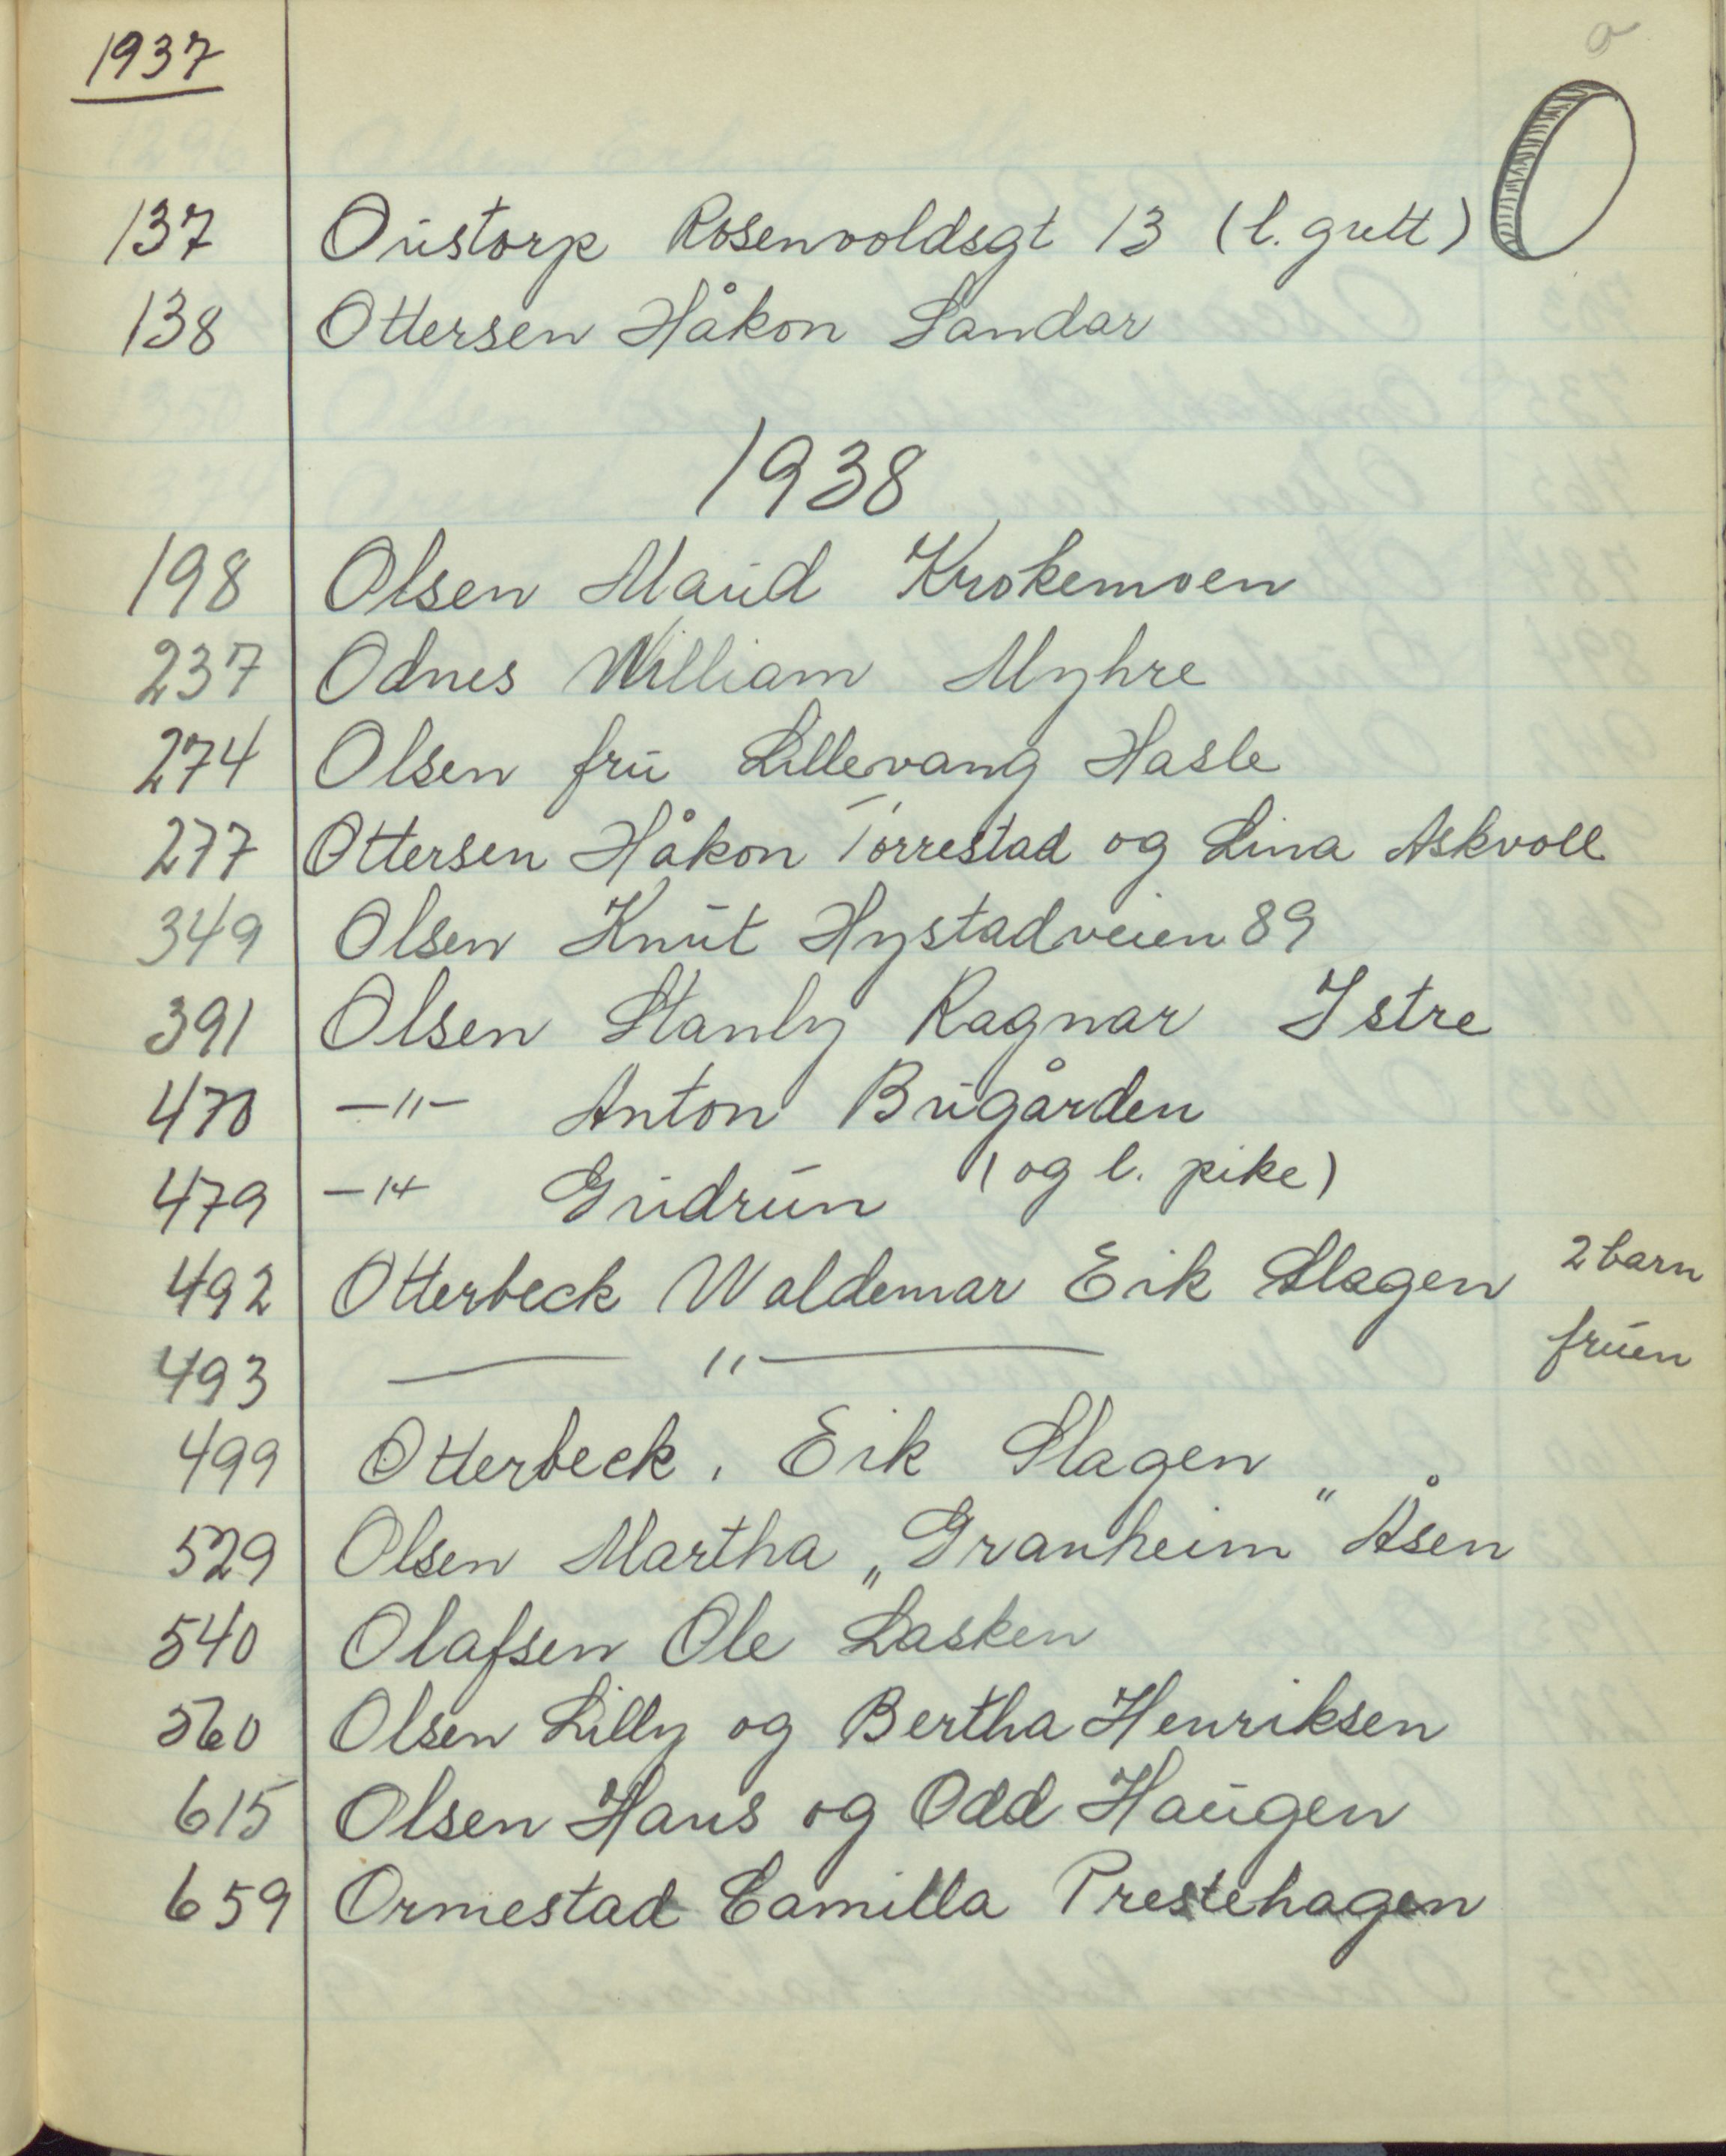 1937
O
137 Oustorp Rosenvoldsgt 13 (l. gutt)
138 Ottersen Håkon Sandar
1938
198 Olsen Maud Krokemoen
237 Odnes William Myhre
274 Olsen fru Lillevang Hasle
277 Ottersen Håkon Torrestad og Lina Askvoll
349 Olsen Knut Hystadveien 89
391 Olsen Stanly Ragnar Istre
470 —"— Anton Bugården
479 —"— Gudrun (og l. pike)
492 Otterbeck Waldemar Eik Slagen 2 barn
493 —"— fruen
499 Otterbeck, Eik Slagen
529 Olsen Martha „Granheim" Åsen
540 Olafsen Ole Lasken
560 Olsen Lilly og Bertha Henriksen
615 Olsen Hans og Odd Haugen
659 Ormestad Camilla Prestehagen